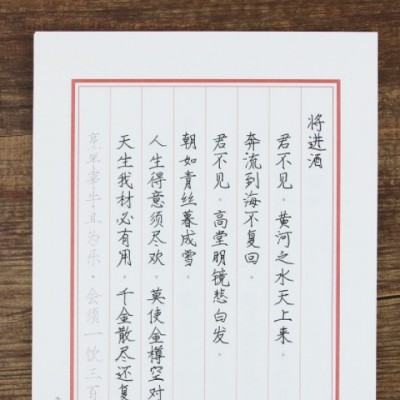 将进酒
君不见。黄河之水天上来。
奔流到海不复回。
君不见。高堂明镜悲白发。
朝如青丝暮成雪。
人生得意须尽欢。莫使金樽空对
天生我材必有用。千金散尽还复
烹羊宰牛且为乐。会须一饮三百